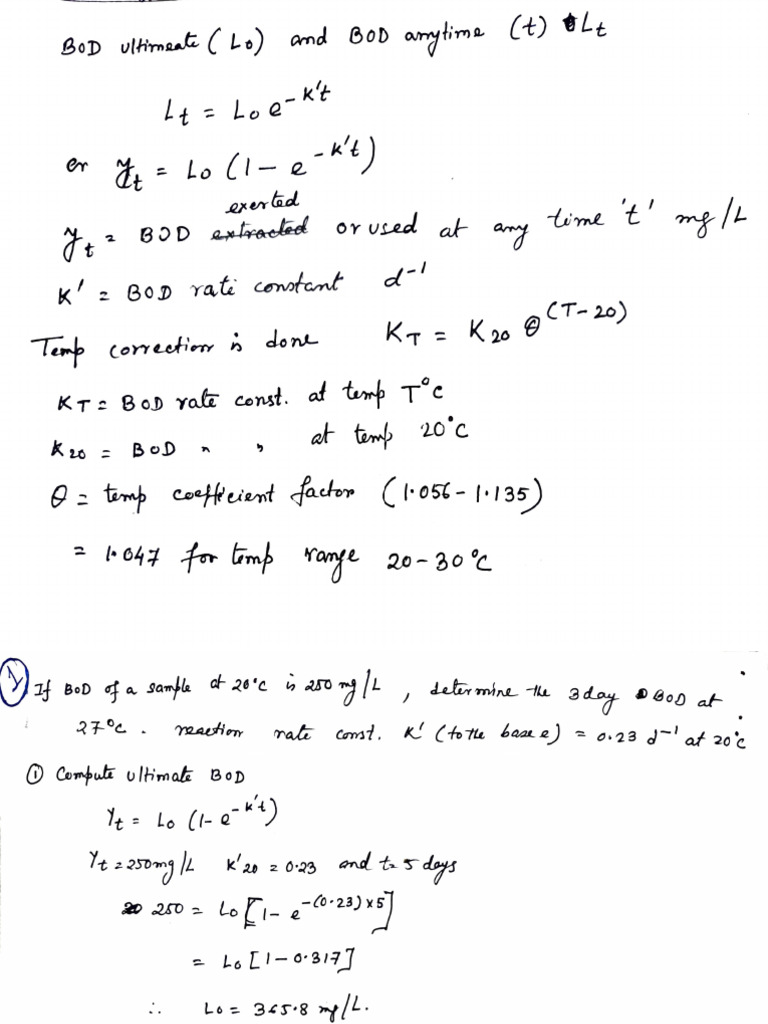 BOD ultimeate (Lo) and BOD anytime (t) Lt
Lt = Lo e^-k't
or yt = Lo (1 - e^-k't)
exerted
yt = BOD extracted or used at any time 't' mg/L
K' = BOD rate constant d^-1
Temp correction is done KT = K20 θ^(T-20)
KT = BOD rate const. at temp T°C
K20 = BOD " " at temp 20°C
θ = temp coefficient factor (1.056 - 1.135)
= 1.047 for temp range 20-30°C
If BOD of a sample at 20°C is 250 mg/L, determine the 3 day BOD at
27°C. reaction rate const. K' (to the base e) = 0.23 d^-1 at 20°C
① Compute ultimate BOD
Yt = Lo (1 - e^-k't)
Yt = 250 mg/L K'20 = 0.23 and t = 5 days
250 = Lo [1 - e^-(0.23)x5]
= Lo [1 - 0.317]
∴ Lo = 365.8 mg/L.